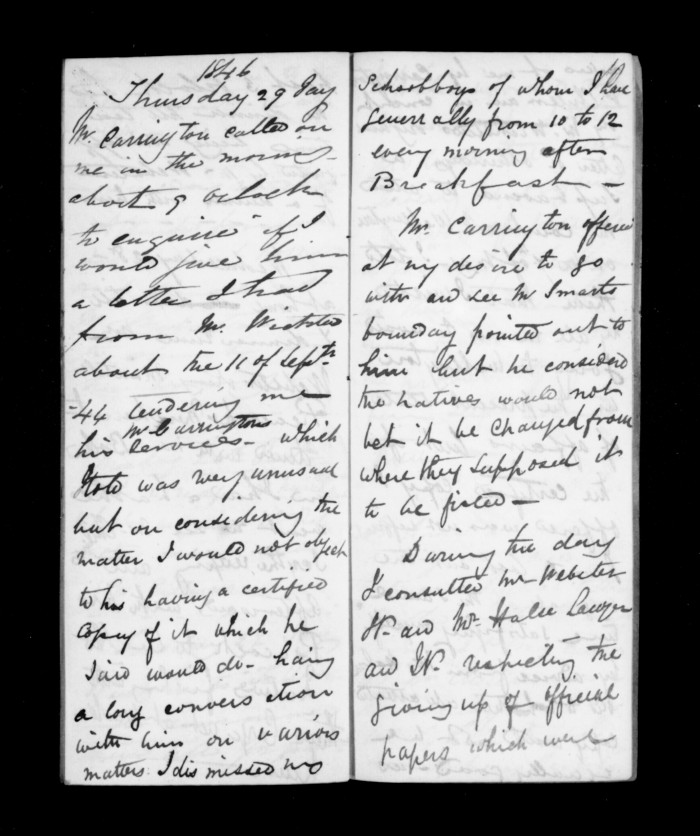 1846
Thursday 29 Jay
Mr. Carrington called on
me in the morning
about 9 oclock
to enquire if I
would give him
a letter I had
from Mr. Wicksted
about the 11 of Septr.
-44 tendering me
Mr Carringtons
his services - which
I told was very unusual
but on considering the
matter I would not object
to his having a certified
Copy of it which he
said would do - having
a long conversation
with him on various
matters I dismissed my
Schoolboys of whom I have
generally from 10 to 12
every morning after
Breakfast -
Mr. Carrington offered
at my desire to go
with and see Mr Smarts
boundary pointed out to
him but he considered
the natives would not
let it be changed from
where they supposed it
to be fixed -
During the day
I consulted Mr Webster
JP. and Mr. Halse Lawyer
and JP. respecting the
giving up of official
papers which were